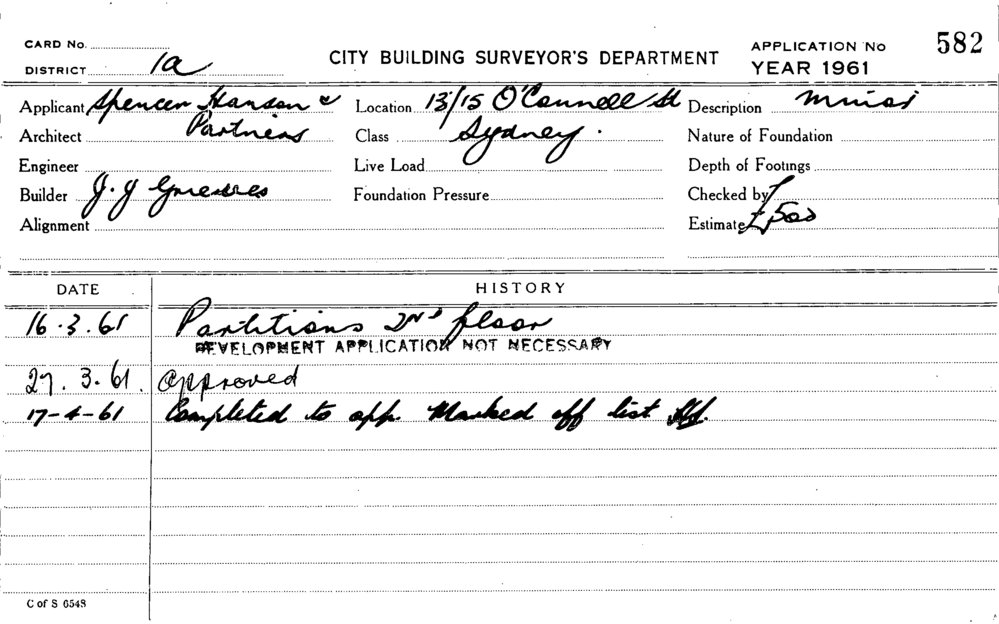 CARD No.
DISTRICT 1a
CITY BUILDING SURVEYOR'S DEPARTMENT
APPLICATION No 582
YEAR 1961
Applicant Spencer Hanson &
Architect Partners
Engineer
Builder J. J
Alignment
Location 13/15 O'Connell St
Class Sydney.
Live Load
Foundation Pressure
Description Minor
Nature of Foundation
Depth of Footings
Checked by
Estimate £500
DATE HISTORY
16.3.61 Partitions 2nd floor
DEVELOPMENT APPLICATION NOT NECESSARY
27.3.61. Approved
17-4-61 Completed to app. Marked off list
C of S 6548